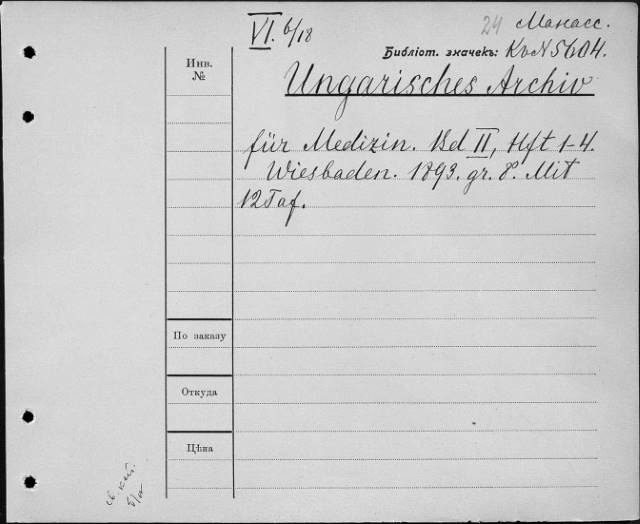 VI. 6/18
24 Манасс.
Библіот. значекъ: Кв N 5604.
Инв. №
Ungarisches Archiv
für Medizin. Bd II, Hft 1-4.
Wiesbaden. 1893. gr. 8°. Mit
12 Taf.
По заказу
Откуда
Цѣна